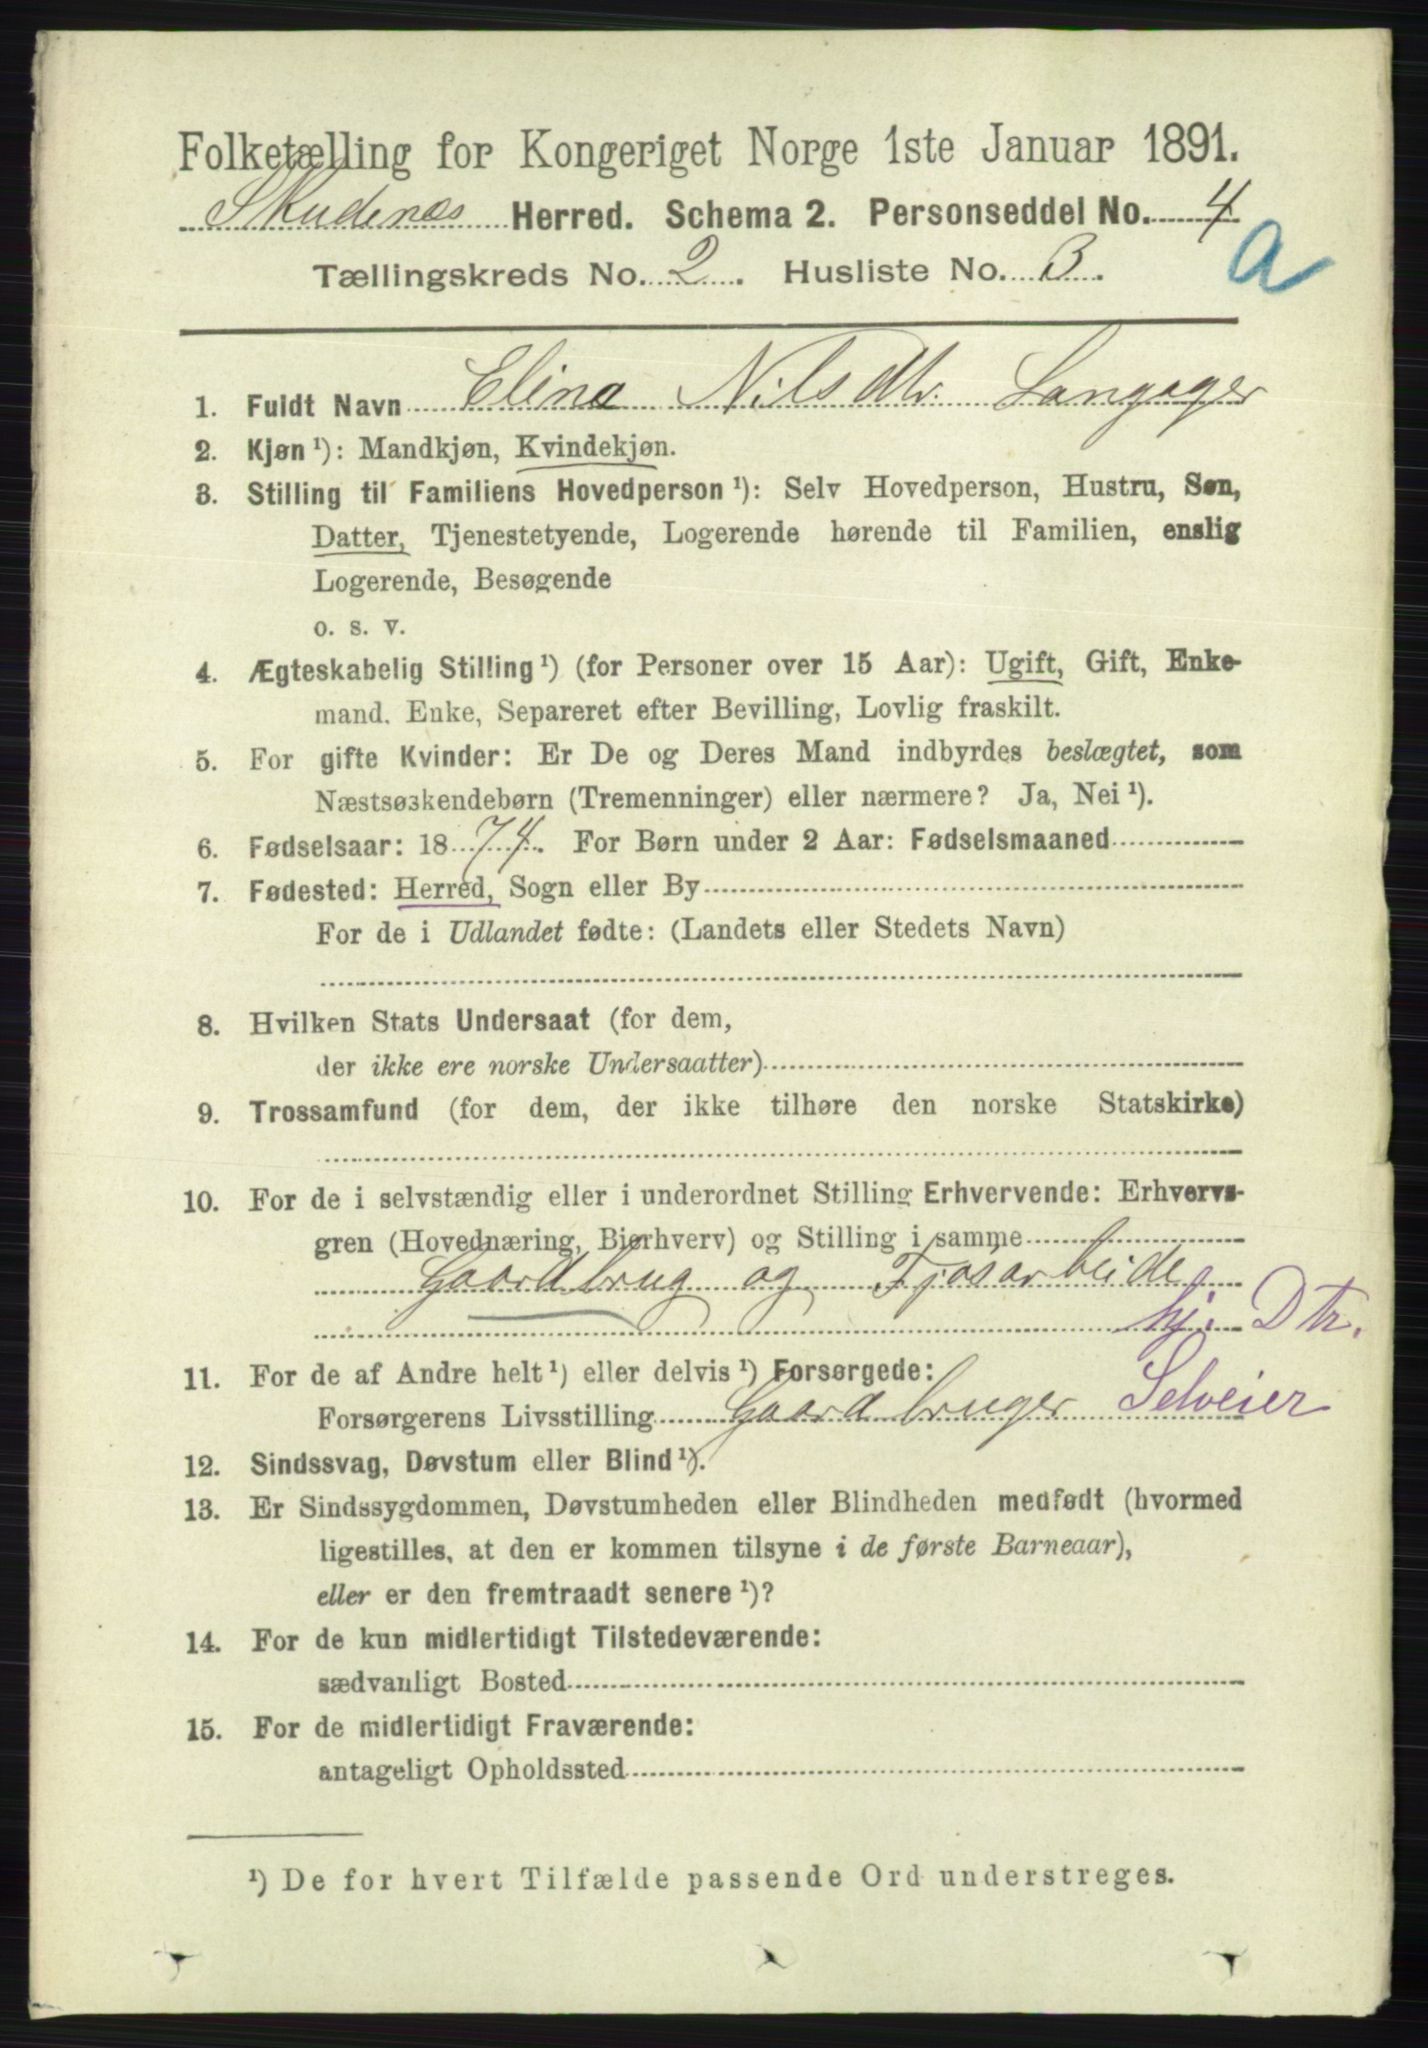 Folketælling for Kongeriget Norge 1ste Januar 1891.
Skudenæs Herred. Schema 2. Personseddel No. 4
a
Tællingskreds No. 2. Husliste No. 3.
1. Fuldt Navn Elina Nilsdtr. Langager
2. Kjøn ¹): Mandkjøn, Kvindekjøn.
3. Stilling til Familiens Hovedperson ¹): Selv Hovedperson, Hustru, Søn,
Datter, Tjenestetyende, Logerende hørende til Familien, enslig
Logerende, Besøgende
o. s. v.
4. Ægteskabelig Stilling ¹) (for Personer over 15 Aar): Ugift, Gift, Enke-
mand, Enke, Separeret efter Bevilling, Lovlig fraskilt.
5. For gifte Kvinder: Er De og Deres Mand indbyrdes beslægtet, som
Næstsøskendebørn (Tremenninger) eller nærmere? Ja, Nei ¹).
6. Fødselsaar: 1874. For Børn under 2 Aar: Fødselsmaaned
7. Fødested: Herred, Sogn eller By
For de i Udlandet fødte: (Landets eller Stedets Navn)
8. Hvilken Stats Undersaat (for dem,
der ikke ere norske Undersaatter)
9. Trossamfund (for dem, der ikke tilhøre den norske Statskirke)
10. For de i selvstændig eller i underordnet Stilling Erhvervende: Erhvervs-
gren (Hovednæring, Bierhverv) og Stilling i samme
Gaardbrug og Fjosarbeide
hj. Dtr.
11. For de af Andre helt ¹) eller delvis ¹) Forsørgede:
Forsørgerens Livsstilling Gaardbruger Selveier
12. Sindssvag, Døvstum eller Blind ¹).
13. Er Sindssygdommen, Døvstumheden eller Blindheden medfødt (hvormed
ligestilles, at den er kommen tilsyne i de første Barneaar),
eller er den fremtraadt senere ¹)?
14. For de kun midlertidigt Tilstedeværende:
sædvanligt Bosted
15. For de midlertidigt Fraværende:
antageligt Opholdssted
¹) De for hvert Tilfælde passende Ord understreges.